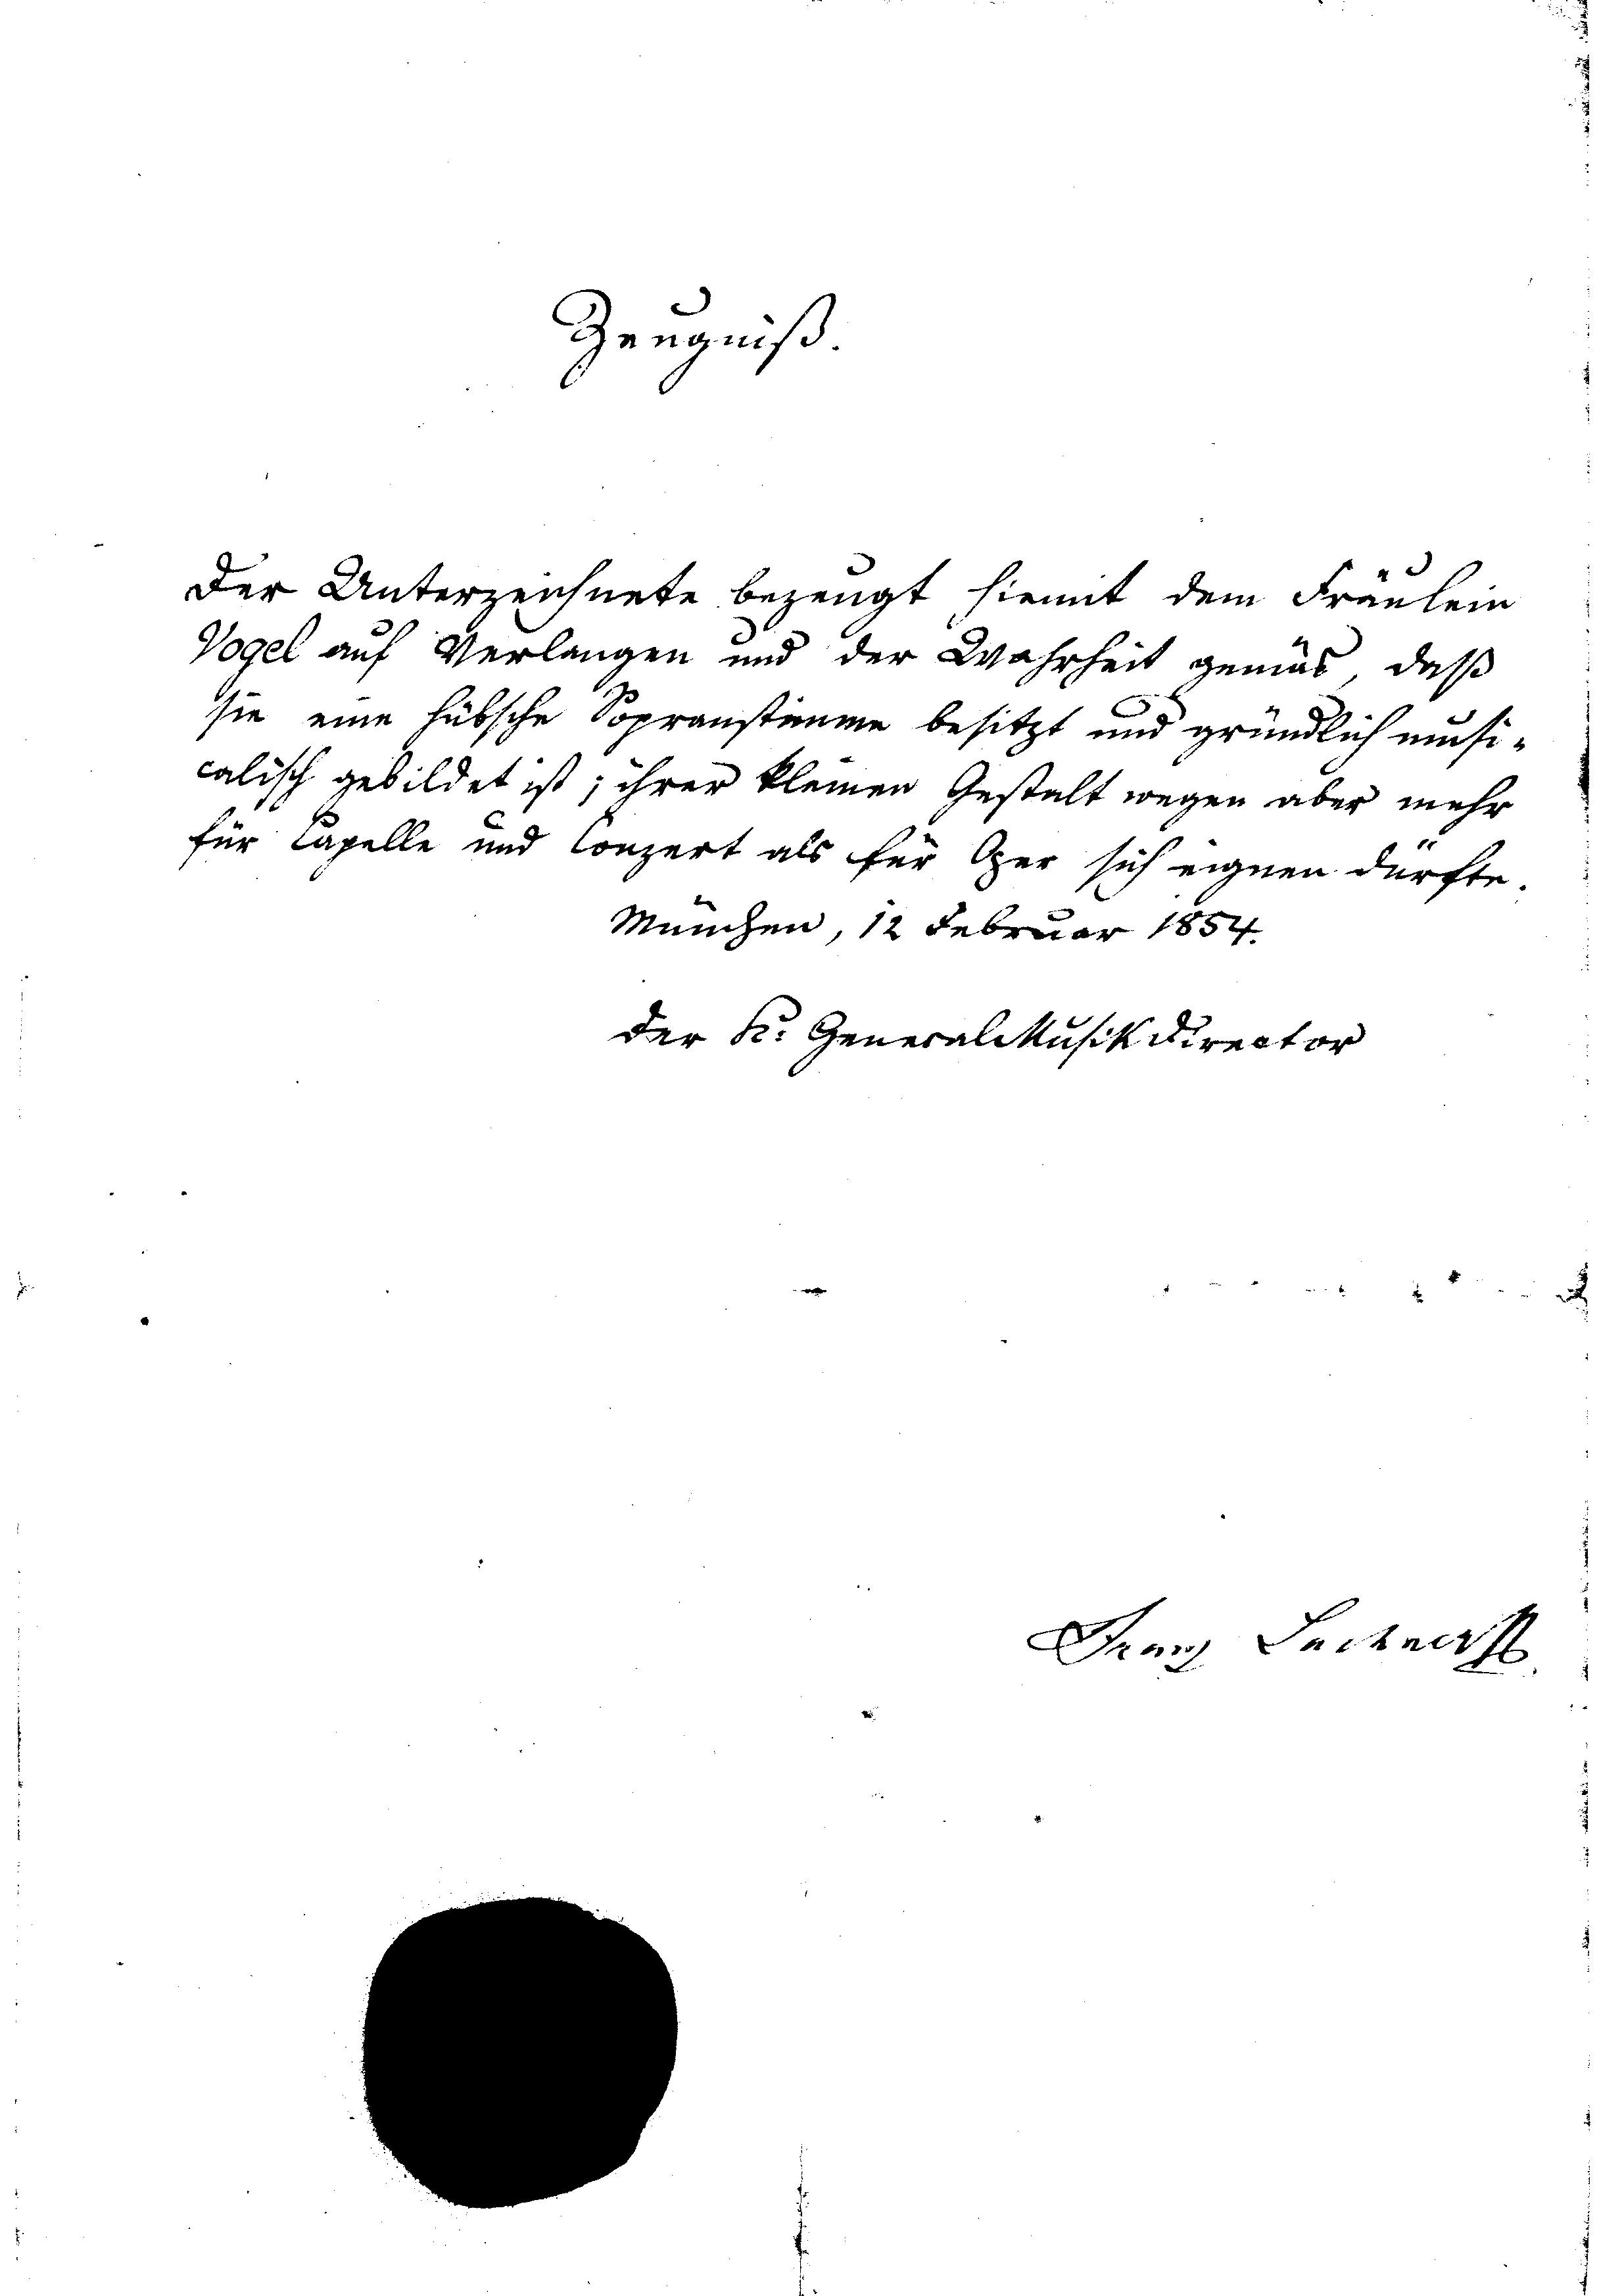 Zeugniß.
Der Unterzeichnete bezeugt hiemit dem Fräulein
Vogel auf Verlangen und der Wahrheit gemäs, daß
sie eine hübsche Sopranstimme besitzt und gründlich musi-
calisch gebildet ist; ihrer kleinen Gestalt wegen aber mehr
für Capelle und Conzert als für Oper sich eignen dürfte.
München, 12 Februar 1854.
Der K. GeneralMusikdirector
Franz Lachner